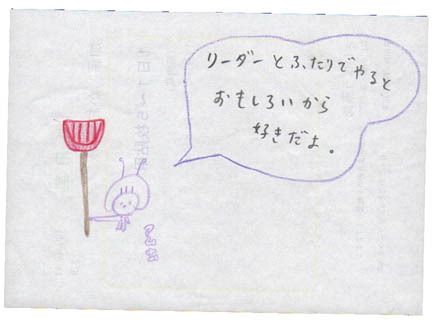 リーダーとふたりでやると
おもしろいから
好きだよ。